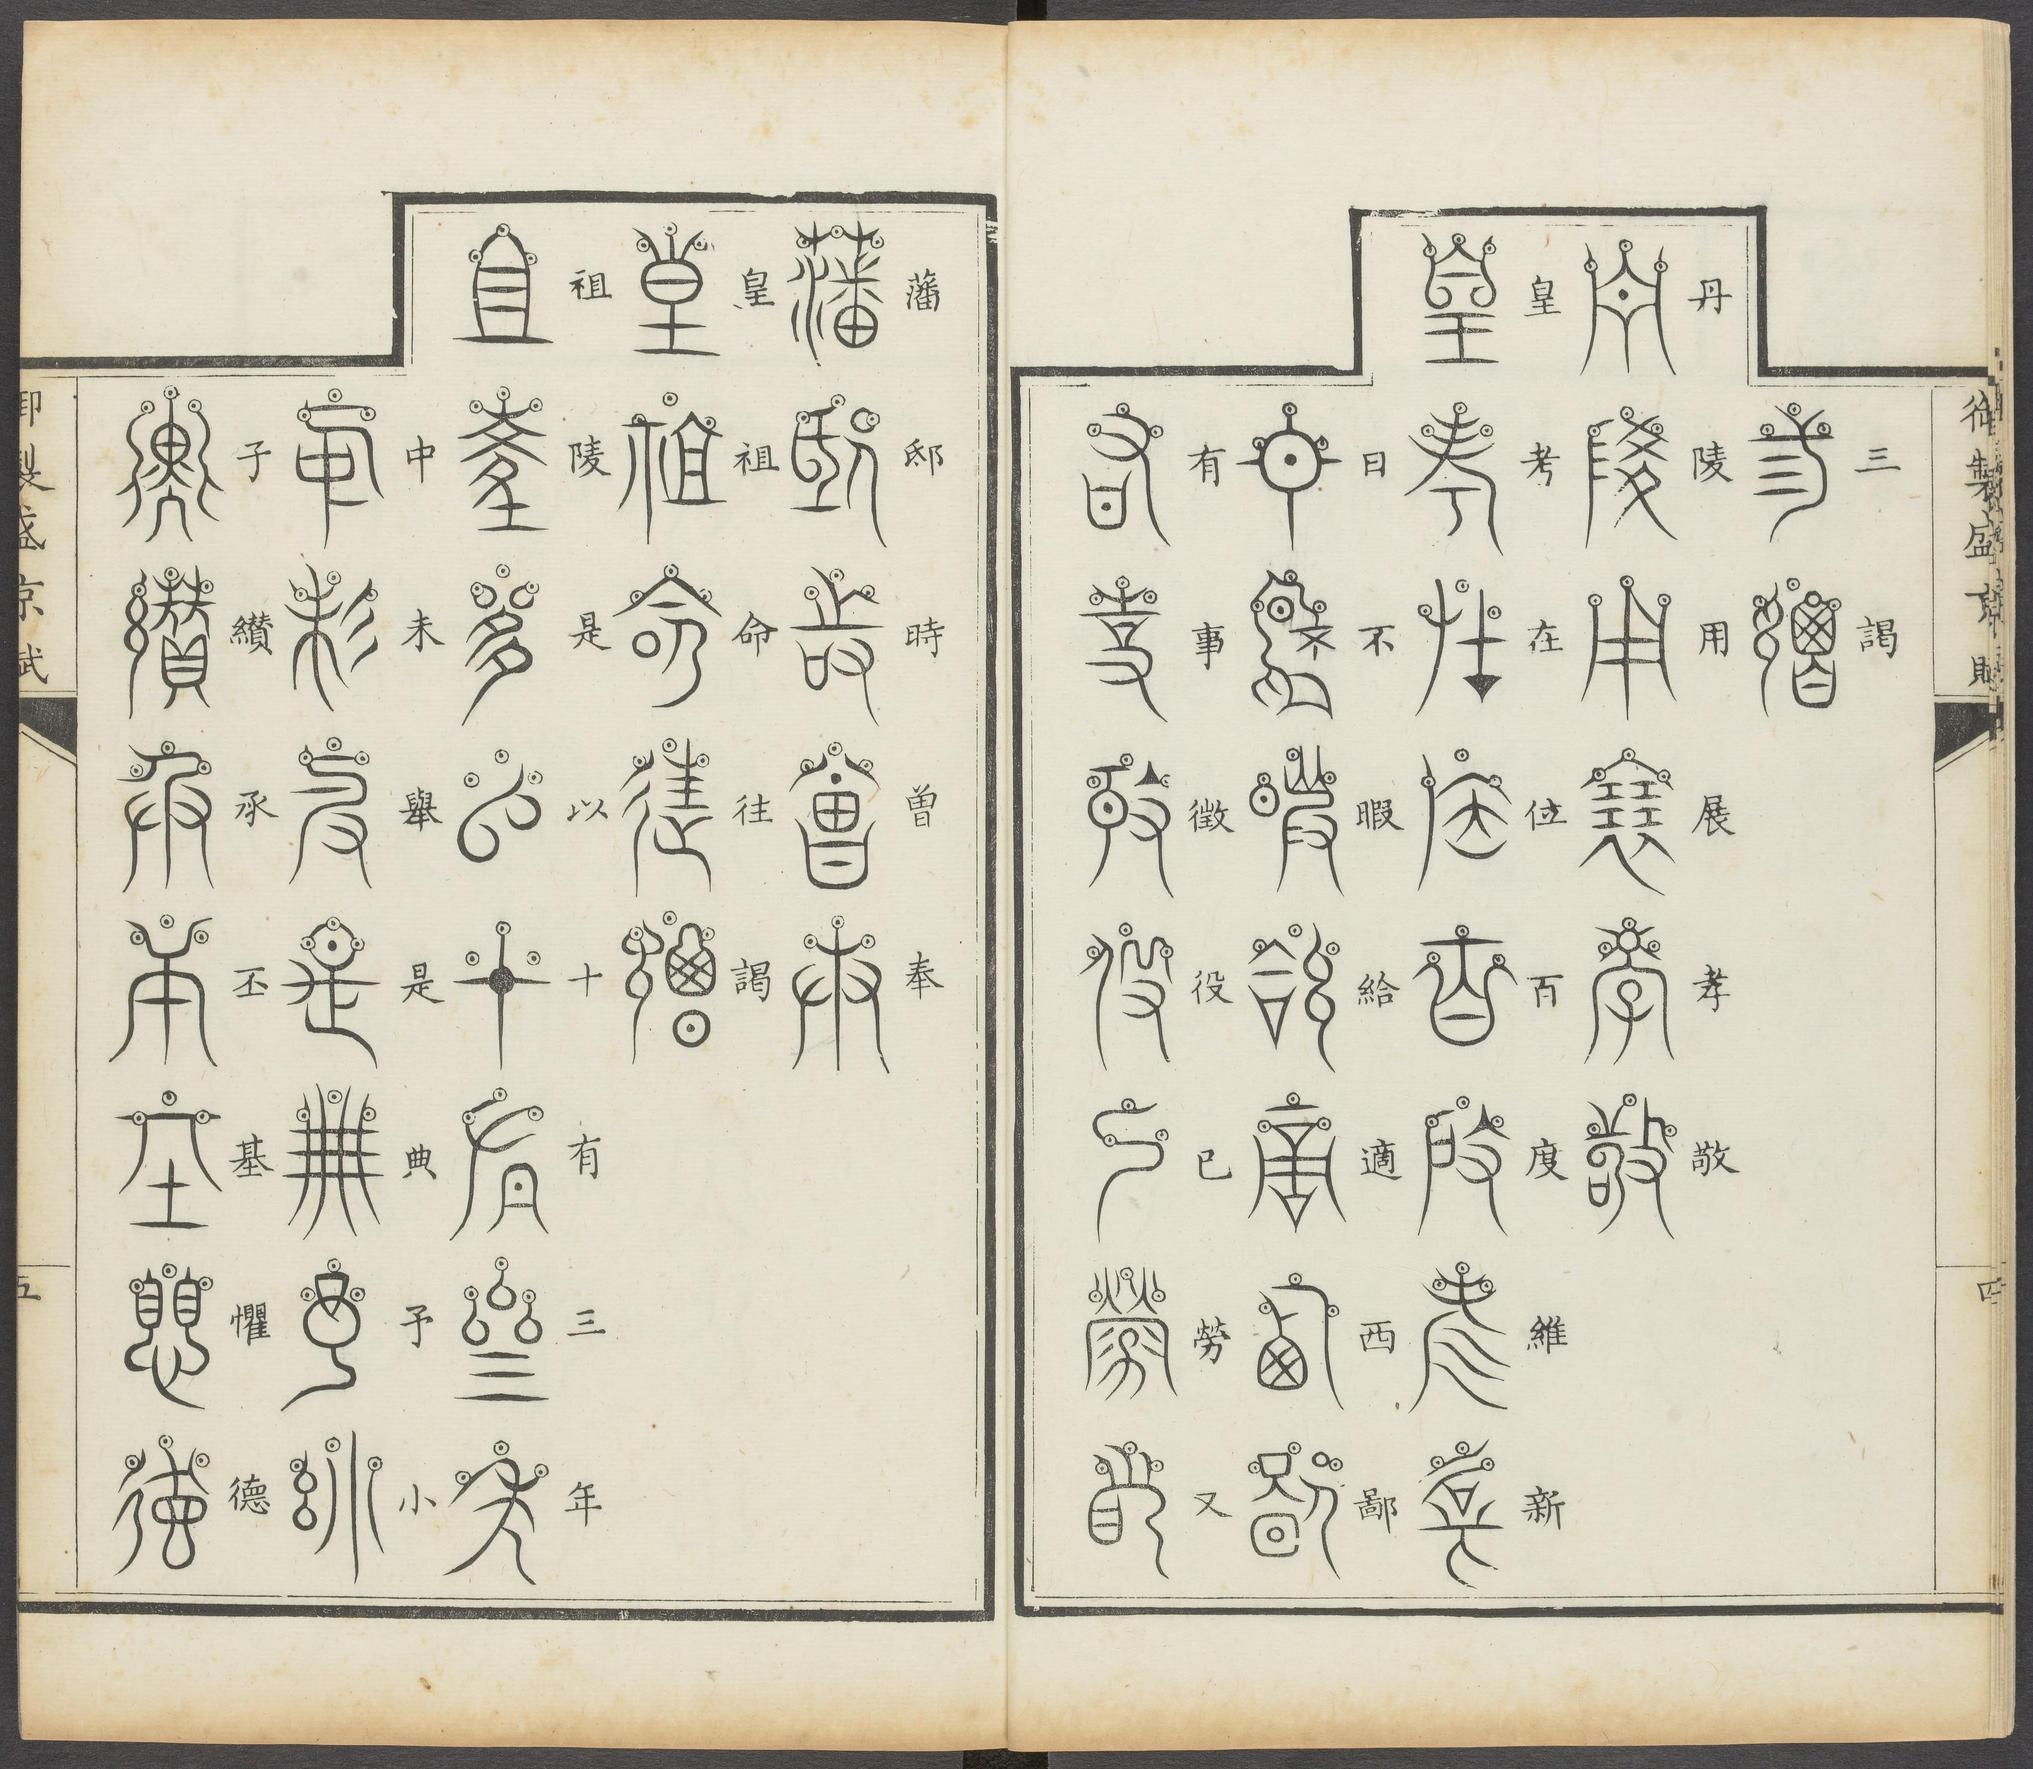 三謁
丹陵用展孝敬
皇考在位百度維新
日不暇給適西鄙
有事徵役已勞又
御製盛京賦
四
藩邸時曾奉
皇祖命往謁
祖陵是以十有三年
中未舉是典予小
子纘承丕基懼德
御製盛京賦
五